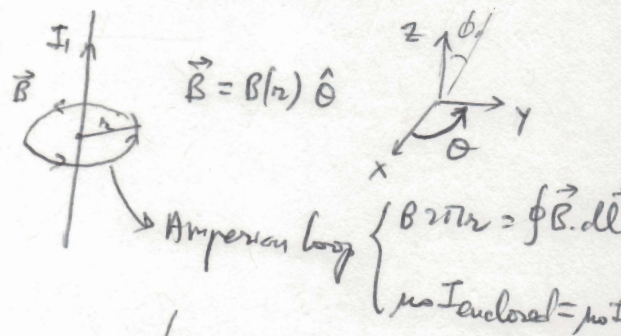 I₁
B⃗
r
B⃗ = B(r) θ̂
Z
φ
Y
X
θ
Amperian loop
B2πr = ∮B⃗.dl⃗
μ₀Ienclosed = μ₀I